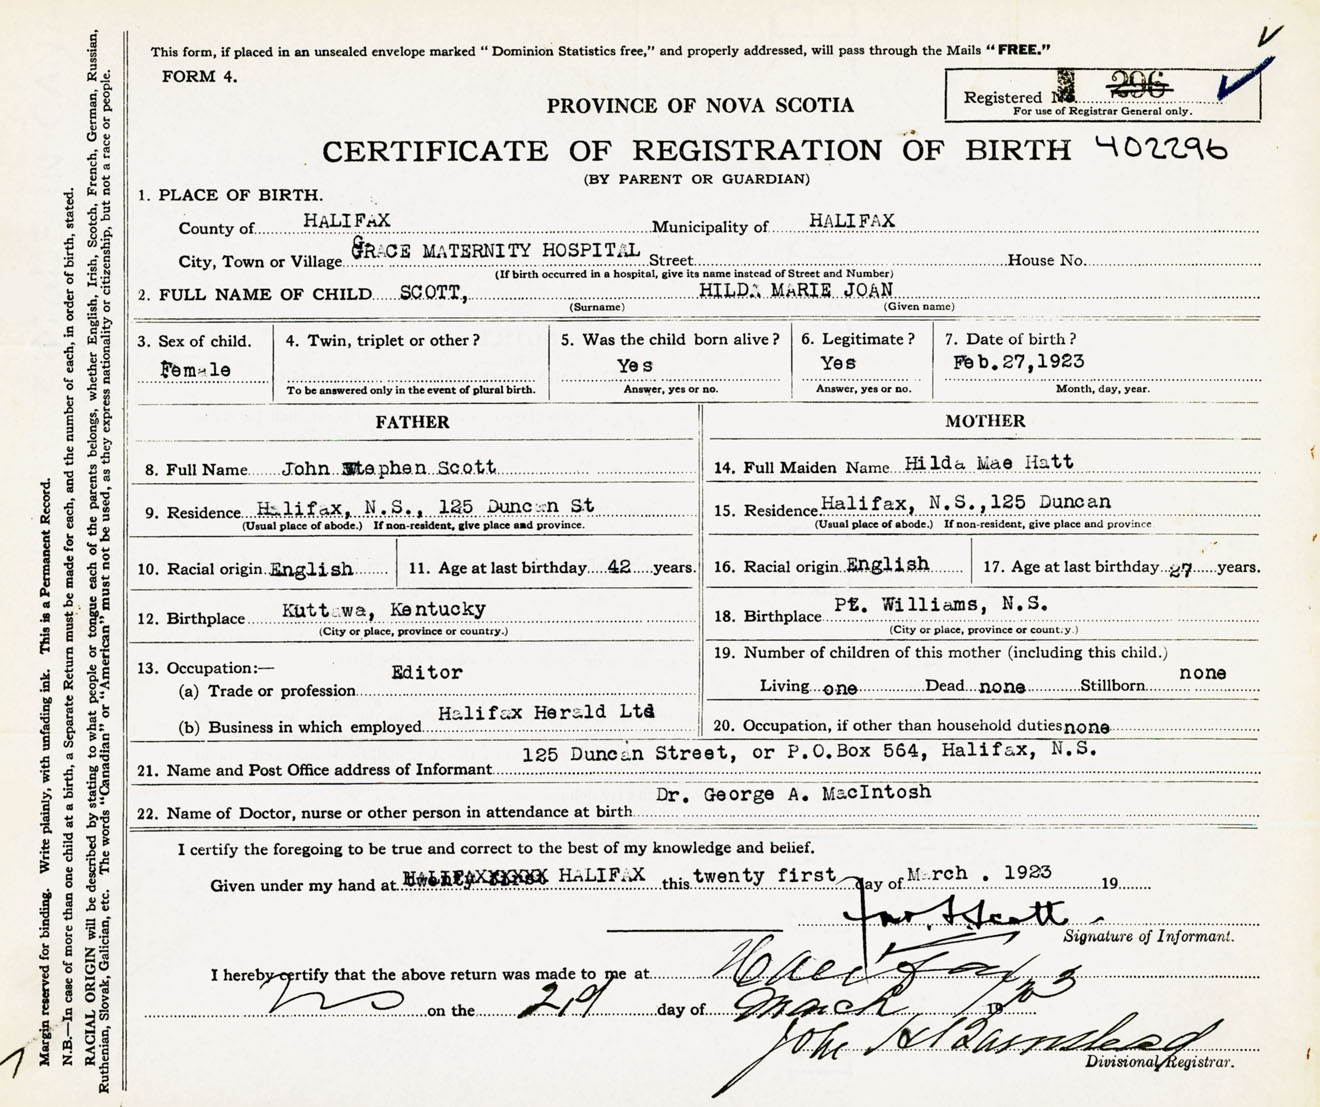 This form, if placed in an unsealed envelope marked "Dominion Statistics free," and properly addressed, will pass through the Mails "FREE."
FORM 4.
Registered No. 296
For use of Registrar General only.
PROVINCE OF NOVA SCOTIA
CERTIFICATE OF REGISTRATION OF BIRTH 402296
(BY PARENT OR GUARDIAN)
1. PLACE OF BIRTH.
County of HALIFAX Municipality of HALIFAX
City, Town or Village GRACE MATERNITY HOSPITAL Street House No.
(If birth occurred in a hospital, give its name instead of Street and Number)
2. FULL NAME OF CHILD SCOTT, HILDA MARIE JOAN
(Surname) (Given name)
3. Sex of child. 4. Twin, triplet or other? 5. Was the child born alive? 6. Legitimate? 7. Date of birth?
Female Yes Yes Feb.27,1923
To be answered only in the event of plural birth. Answer, yes or no. Answer, yes or no. Month, day, year.
FATHER
8. Full Name John Stephen Scott
9. Residence Halifax, N.S., 125 Duncan St
(Usual place of abode.) If non-resident, give place and province.
10. Racial origin English 11. Age at last birthday 42 years.
12. Birthplace Kuttawa, Kentucky
(City or place, province or country.)
13. Occupation:—
Editor
(a) Trade or profession
(b) Business in which employed Halifax Herald Ltd
MOTHER
14. Full Maiden Name Hilda Mae Hatt
15. Residence Halifax, N.S.,125 Duncan
(Usual place of abode.) If non-resident, give place and province
16. Racial origin English 17. Age at last birthday 27 years.
18. Birthplace Pt. Williams, N.S.
(City or place, province or country.)
19. Number of children of this mother (including this child.)
Living one Dead none Stillborn none
20. Occupation, if other than household duties none
21. Name and Post Office address of Informant 125 Duncan Street, or P.O.Box 564, Halifax, N.S.
22. Name of Doctor, nurse or other person in attendance at birth Dr. George A. MacIntosh
I certify the foregoing to be true and correct to the best of my knowledge and belief.
Given under my hand at HALIFAX this twenty first day of March . 1923 19
Jno. S. Scott
Signature of Informant.
I hereby certify that the above return was made to me at Halifax
N S on the 29 day of March 1923
John H Barnstead
Divisional Registrar.
Margin reserved for binding. Write plainly, with unfading ink. This is a Permanent Record.
N.B.—In case of more than one child at a birth, a Separate Return must be made for each, and the number of each, in order of birth, stated.
RACIAL ORIGIN will be described by stating to what people or tongue each of the parents belongs, whether English, Irish, Scotch, French, German, Russian,
Ruthenian, Slovak, Galician, etc. The words "Canadian" or "American" must not be used, as they express nationality or citizenship, but not a race or people.